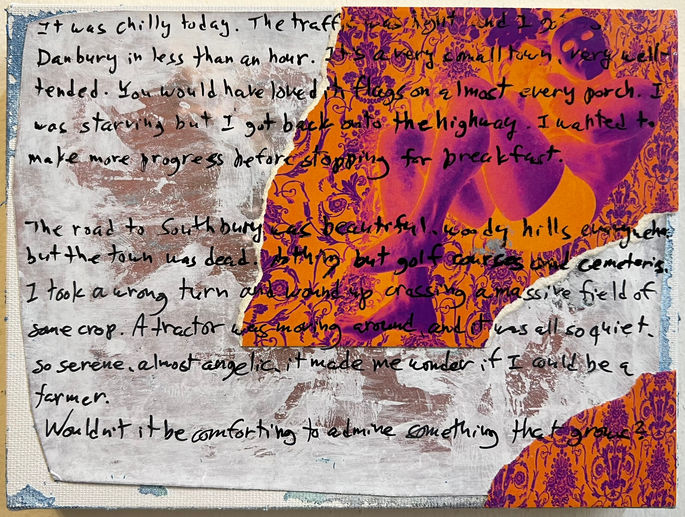 It was chilly today. The traffic was light and I got to
Danbury in less than an hour. It's a very small town, very well-
tended. You would have loved it, flags on almost every porch. I
was starving but I got back onto the highway. I wanted to
make more progress before stopping for breakfast.
The road to Southbury was beautiful, woody hills everywhere,
but the town was dead, nothing but golf courses and cemeteries.
I took a wrong turn and wound up crossing a massive field of
some crop. A tractor was moving around and it was all so quiet,
so serene, almost angelic, it made me wonder if I could be a
farmer.
Wouldn't it be comforting to admire something that grows?